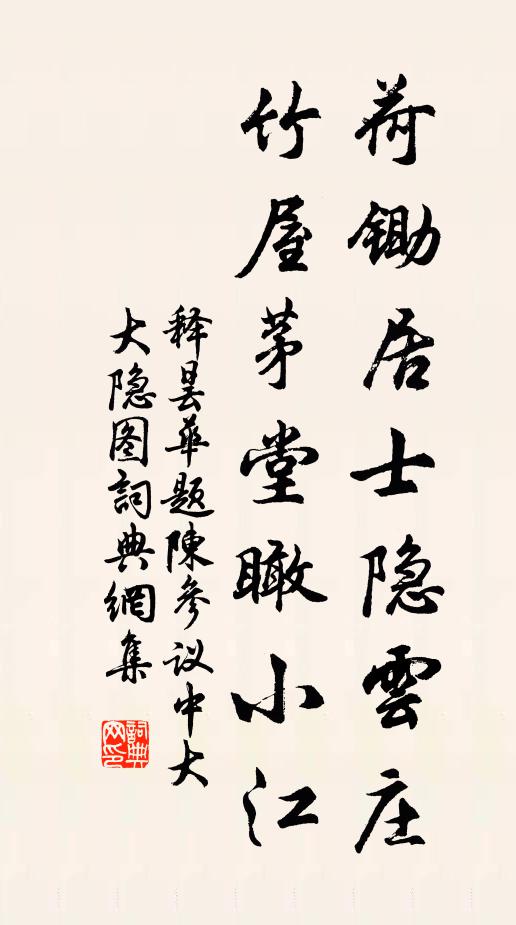 荷锄居士隐雲庄
竹屋茅堂瞰小江
释昙華题陳參议中大
大隐图詞典網集
詞典网印